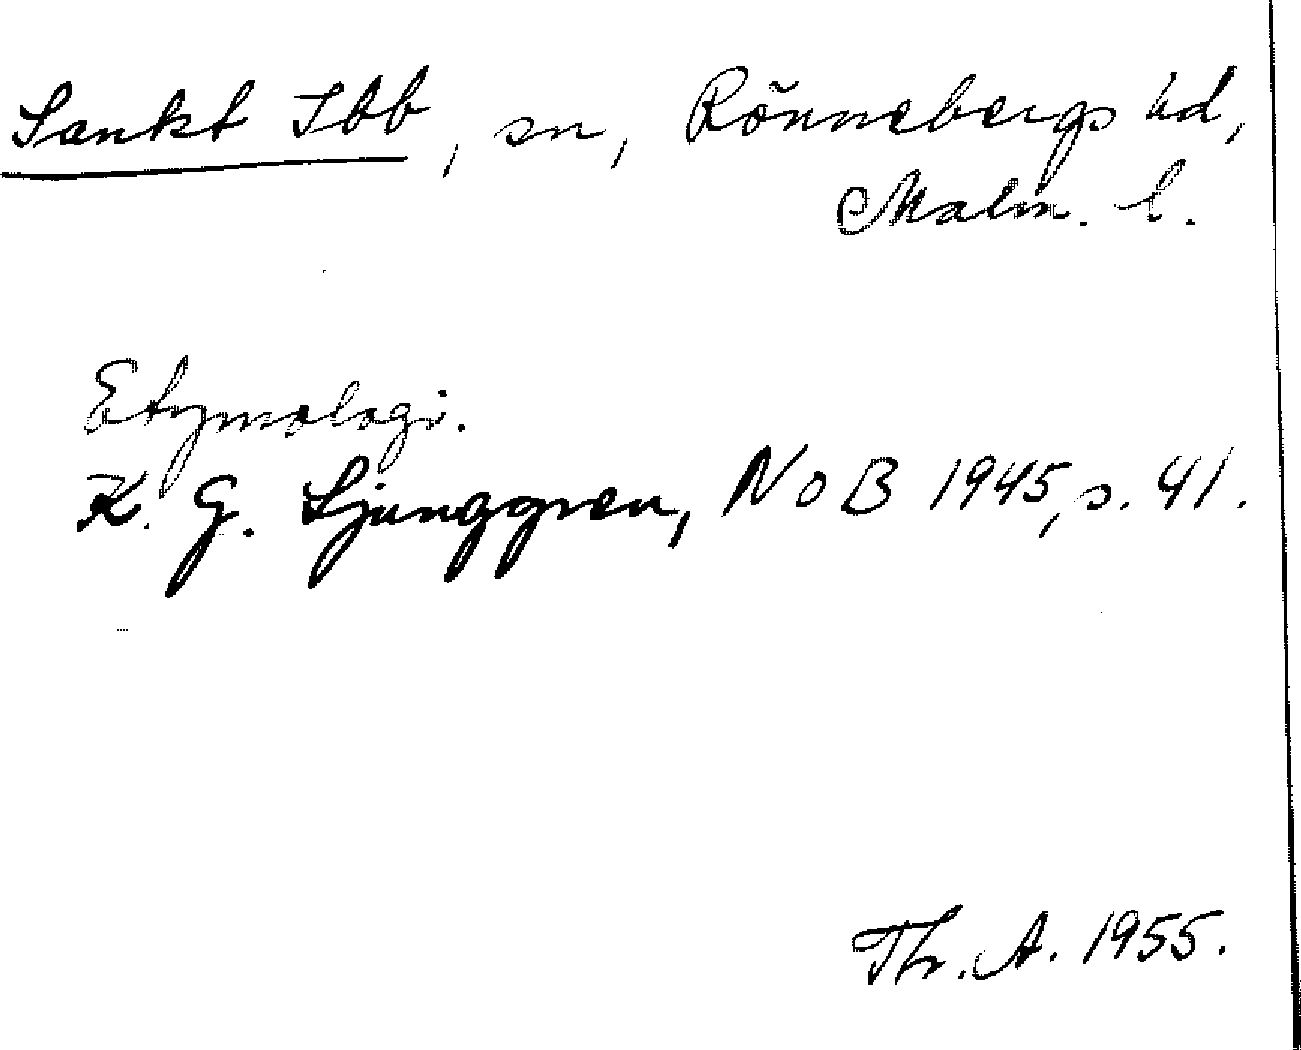 Sankt Ibb, sn, Rönnebergs hd,
Malm. l.
Etymologi.
K. G. Ljunggren, NoB 1945, s. 41.
Th. A. 1955.